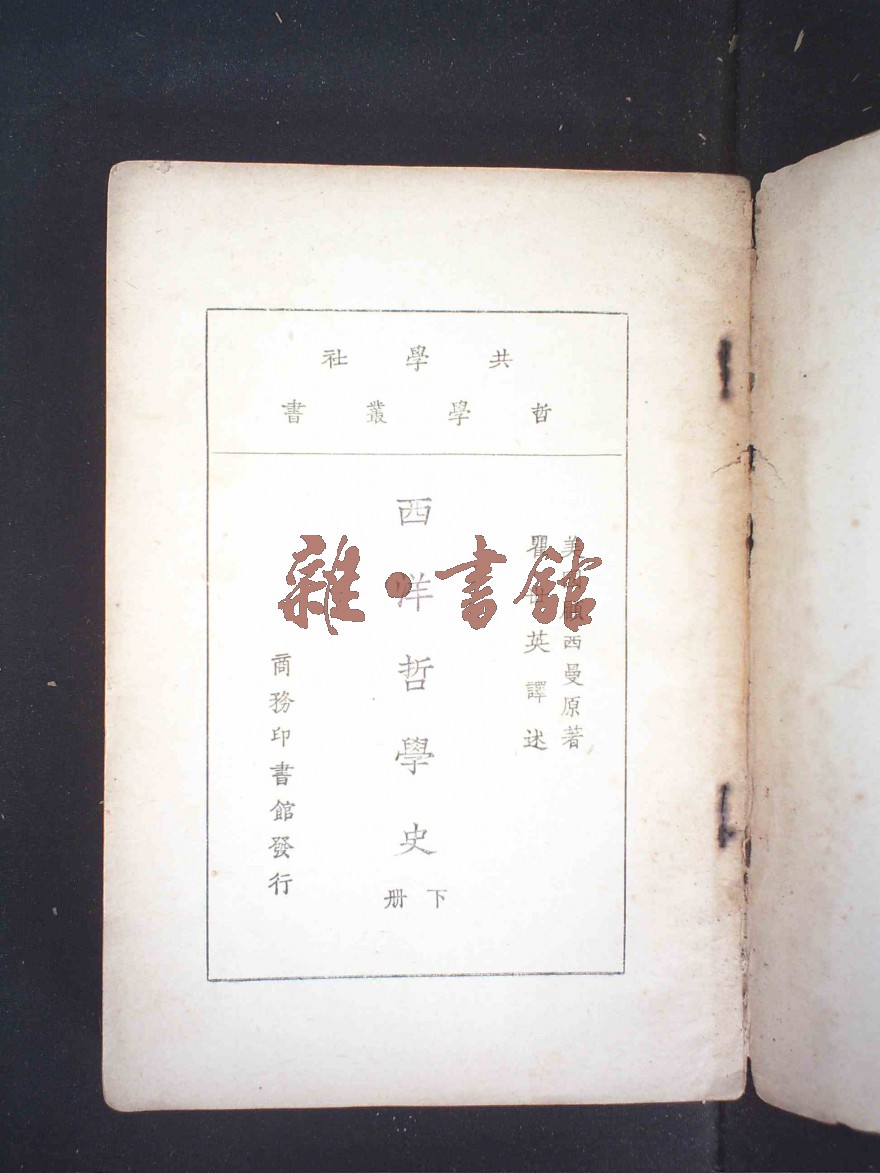 共學社
哲學叢書
美國顧西曼原著
瞿世英譯述
西洋哲學史
下册
商務印書館發行
雜·書館